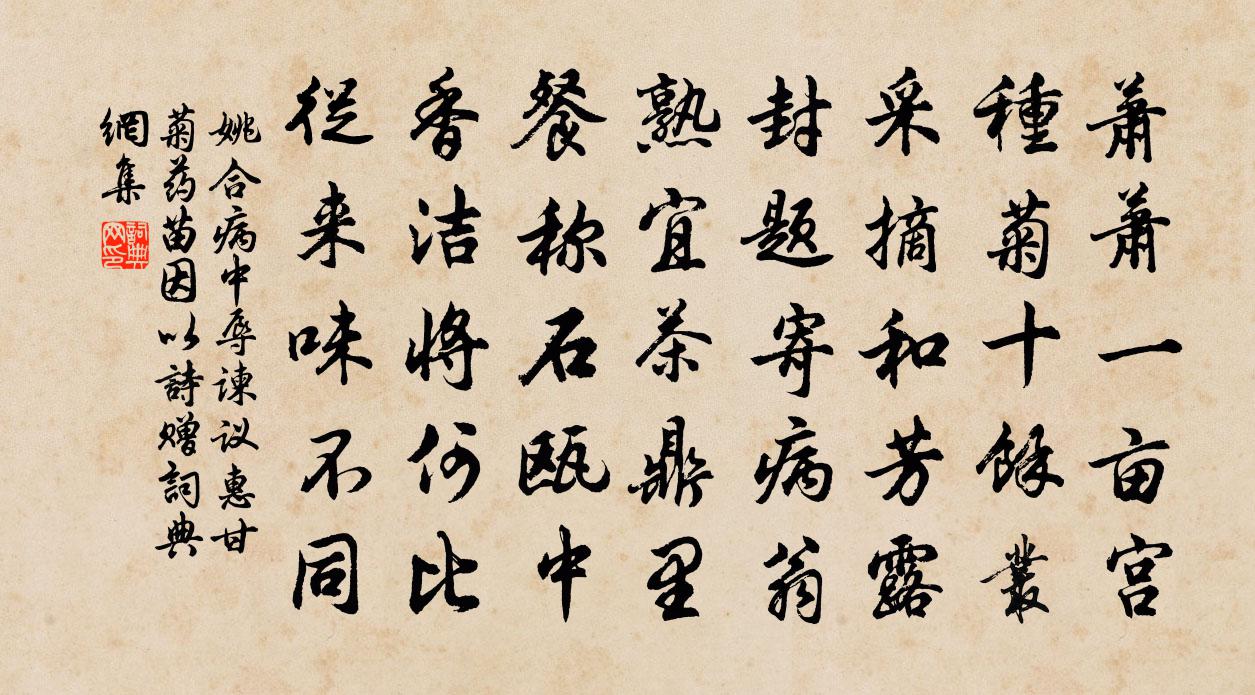 萧萧一亩宫
種菊十餘叢
采摘和芳露
封题寄病翁
熟宜茶鼎里
餐称石瓯中
香洁将何比
從来味不同
姚合病中辱谏议惠甘
菊药苗因以詩赠詞典
網集
詞典
网印